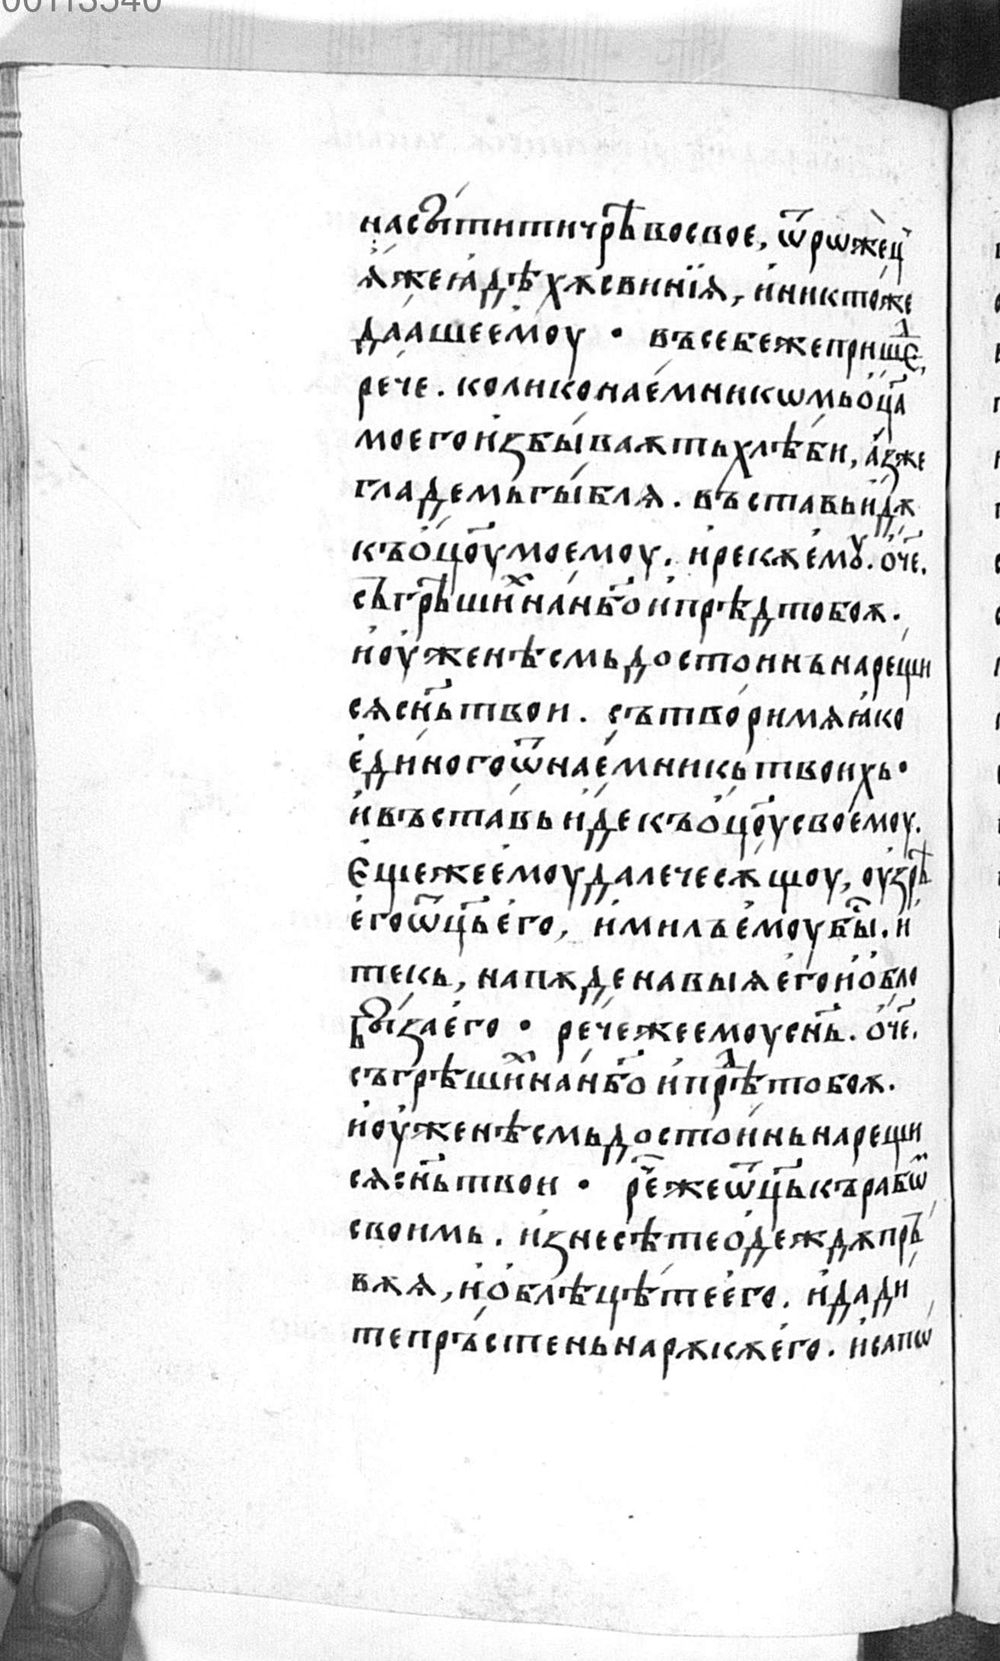 00113540
насы́тити чрѣво свое, ѿ рѡже́ц
ꙗ́же ꙗ҆дѣ́хѫ свинїѧ, и҆ никтоже
даа́ше е҆моу · въ себе же прише́д
рече. колико нае́мникѡмь ѻц҃а
моего и҆збы́ваѫть хлѣби, а҆з же
гладемь гы́блѧ. въставь и҆дѫ
къ ѻц҃оу моемоу. и҆ рекѫ е҆мꙋ. ѻч҃е.
съгрѣших на нб҃о и҆ прѣд тобоѫ.
и҆ оуже нѣсмь достоинъ нарещи
сѧ сн҃ь твои. сътвори мѧ ꙗ҆ко
е҆диного ѿ нае́мникь твоихь ·
и҆ въставь и҆де къ ѻц҃оу своемоу.
Еще же е҆моу далече сѫщоу, оу҆зрѣ
е҆го ѿц҃ь е҆го, и҆ миль е҆моу бы́с. и҆
текь, нападе на выѧ е҆го и҆ ѻ҆бло
бы́за е҆го · рече же е҆моу сн҃ь. ѻч҃е.
съгрѣших на нб҃о и҆ прѣд тобоѫ.
и҆ оуже нѣсмь достоинь нарещи
сѧ сн҃ь твои · реч҃ же ѿц҃ь къ рабѡм
своимь. и҆знесѣте ѻ҆деждѫ пръ
вѫѧ, и҆ ѻ҆блѣцѣте е҆го. и҆ дади
те пръстень на рѫкѫ е҆го. и҆ сапѡ